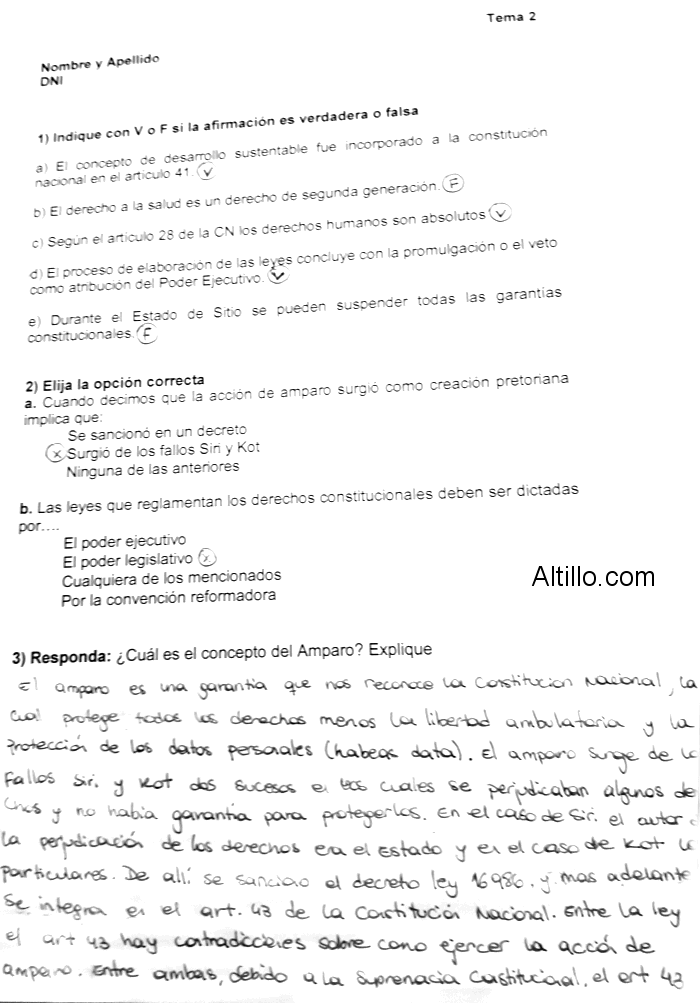 Tema 2
Nombre y Apellido
DNI
1) Indique con V o F si la afirmación es verdadera o falsa
a) El concepto de desarrollo sustentable fue incorporado a la constitución
nacional en el artículo 41. V
b) El derecho a la salud es un derecho de segunda generación. F
c) Según el artículo 28 de la CN los derechos humanos son absolutos V
d) El proceso de elaboración de las leyes concluye con la promulgación o el veto
como atribución del Poder Ejecutivo. V
e) Durante el Estado de Sitio se pueden suspender todas las garantías
constitucionales. F
2) Elija la opción correcta
a. Cuando decimos que la acción de amparo surgió como creación pretoriana
implica que:
Se sancionó en un decreto
x Surgió de los fallos Siri y Kot
Ninguna de las anteriores
b. Las leyes que reglamentan los derechos constitucionales deben ser dictadas
por....
El poder ejecutivo
El poder legislativo x
Cualquiera de los mencionados
Por la convención reformadora
Altillo.com
3) Responda: ¿Cuál es el concepto del Amparo? Explique
El amparo es una garantía que nos reconoce la Constitución Nacional, la
cual protege todos los derechos menos la libertad ambulatoria y la
protección de los datos personales (habeas data). El amparo surge de
Fallos Siri y Kot dos sucesos en los cuales se perjudicaban algunos de
y no había garantía para protegerlos. En el caso de Siri el autor
la perjudicación de los derechos era el Estado y en el caso de Kot
particulares. De allí se sanciono el decreto ley 16986 y mas adelante
se integra en el art. 43 de la Constitución Nacional. Entre la ley
el art 43 hay contradicciones sobre como ejercer la acción de
amparo. Entre ambas, debido a la Supremacia Constitucional, el art 43